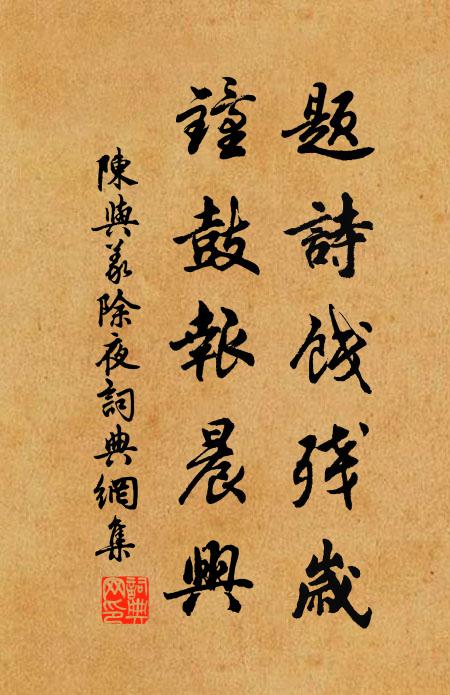 題詩餞殘歲
鐘鼓報晨興
陳與義除夜詞典網集
詞典網印